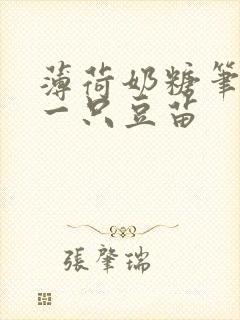 薄荷奶糖笔
一只豆苗
張肇瑞